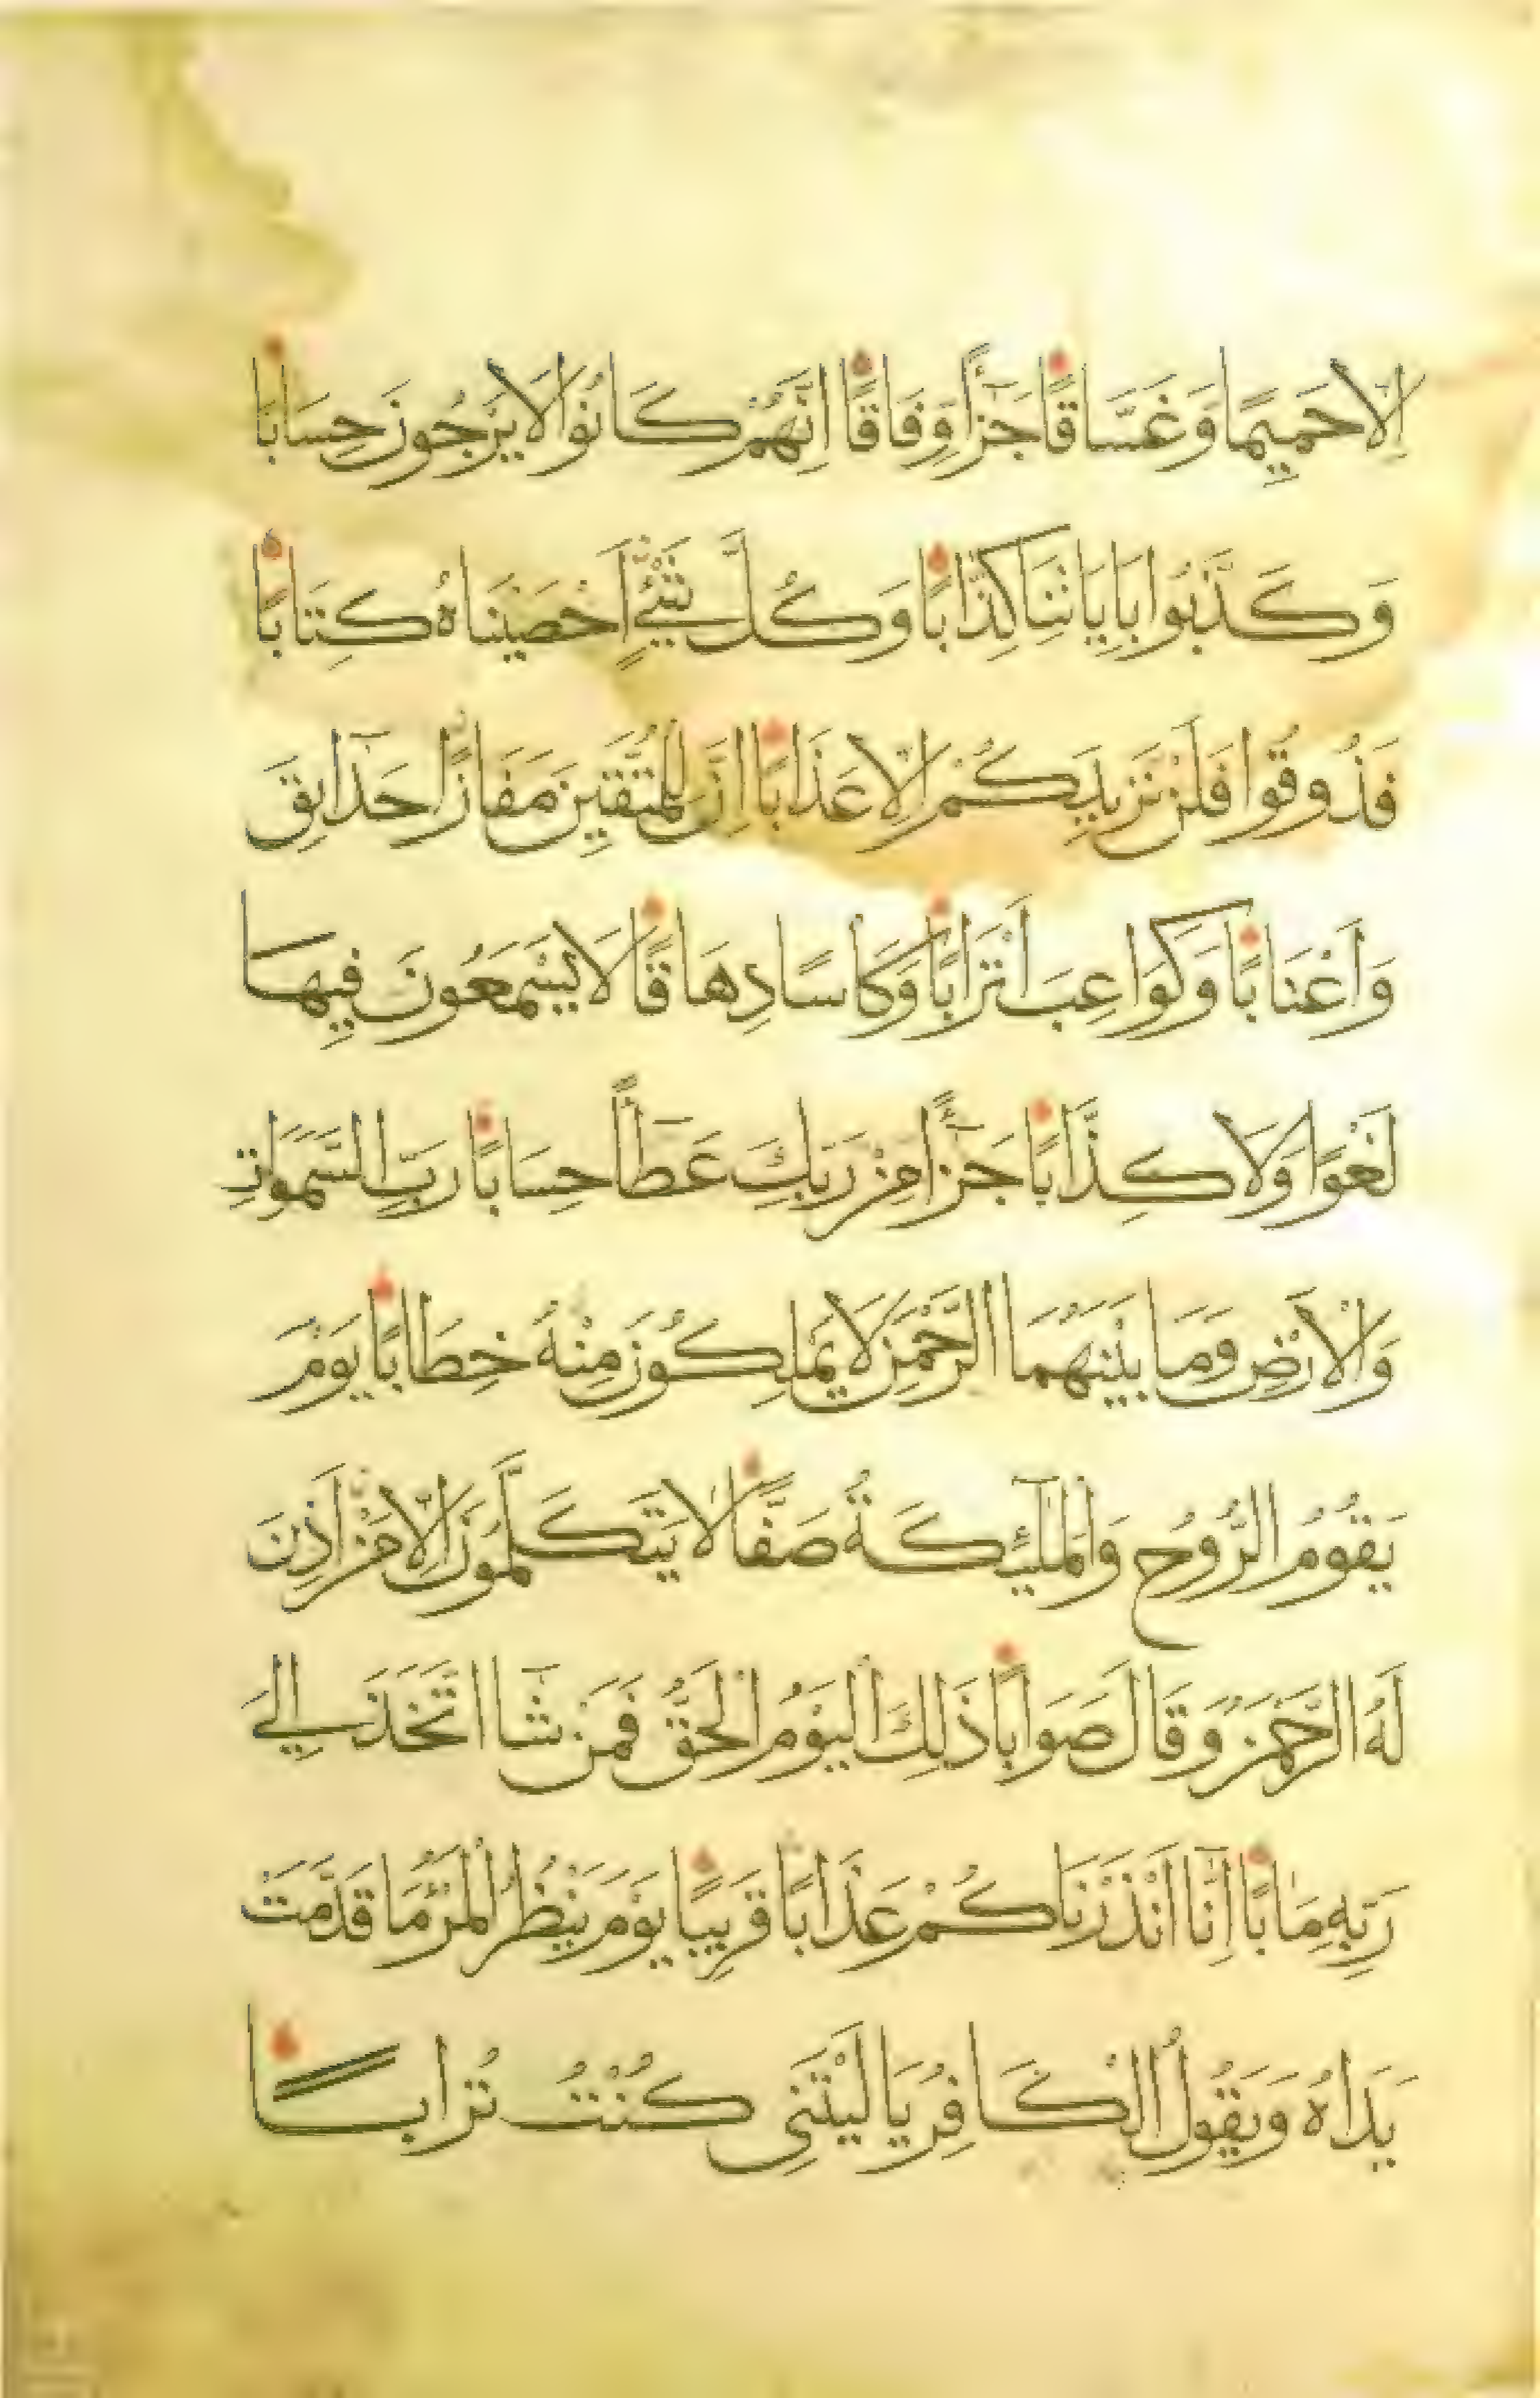 اِلَّا حَمِيمًا وَغَسَّاقًا جَزَآءً وِفَاقًا اِنَّهُمْ كَانُوا لَا يَرْجُونَ حِسَابًا
وَكَذَّبُوا بِاٰيَاتِنَا كِذَّابًا وَكُلَّ شَيْءٍ اَحْصَيْنَاهُ كِتَابًا
فَذُوقُوا فَلَنْ نَزِيدَكُمْ اِلَّا عَذَابًا اِنَّ لِلْمُتَّقِينَ مَفَازًا حَدَآئِقَ
وَاَعْنَابًا وَكَوَاعِبَ اَتْرَابًا وَكَاْسًا دِهَاقًا لَا يَسْمَعُونَ فِيهَا
لَغْوًا وَلَا كِذَّابًا جَزَآءً مِنْ رَبِّكَ عَطَآءً حِسَابًا رَبِّ السَّمٰوَاتِ
وَالْاَرْضِ وَمَا بَيْنَهُمَا الرَّحْمٰنِ لَا يَمْلِكُونَ مِنْهُ خِطَابًا يَوْمَ
يَقُومُ الرُّوحُ وَالْمَلٰٓئِكَةُ صَفًّا لَا يَتَكَلَّمُونَ اِلَّا مَنْ اَذِنَ
لَهُ الرَّحْمٰنُ وَقَالَ صَوَابًا ذٰلِكَ الْيَوْمُ الْحَقُّ فَمَنْ شَآءَ اتَّخَذَ اِلٰى
رَبِّهِ مَاٰبًا اِنَّآ اَنْذَرْنَاكُمْ عَذَابًا قَرِيبًا يَوْمَ يَنْظُرُ الْمَرْءُ مَا قَدَّمَتْ
يَدَاهُ وَيَقُولُ الْكَافِرُ يَا لَيْتَنِى كُنْتُ تُرَابًا